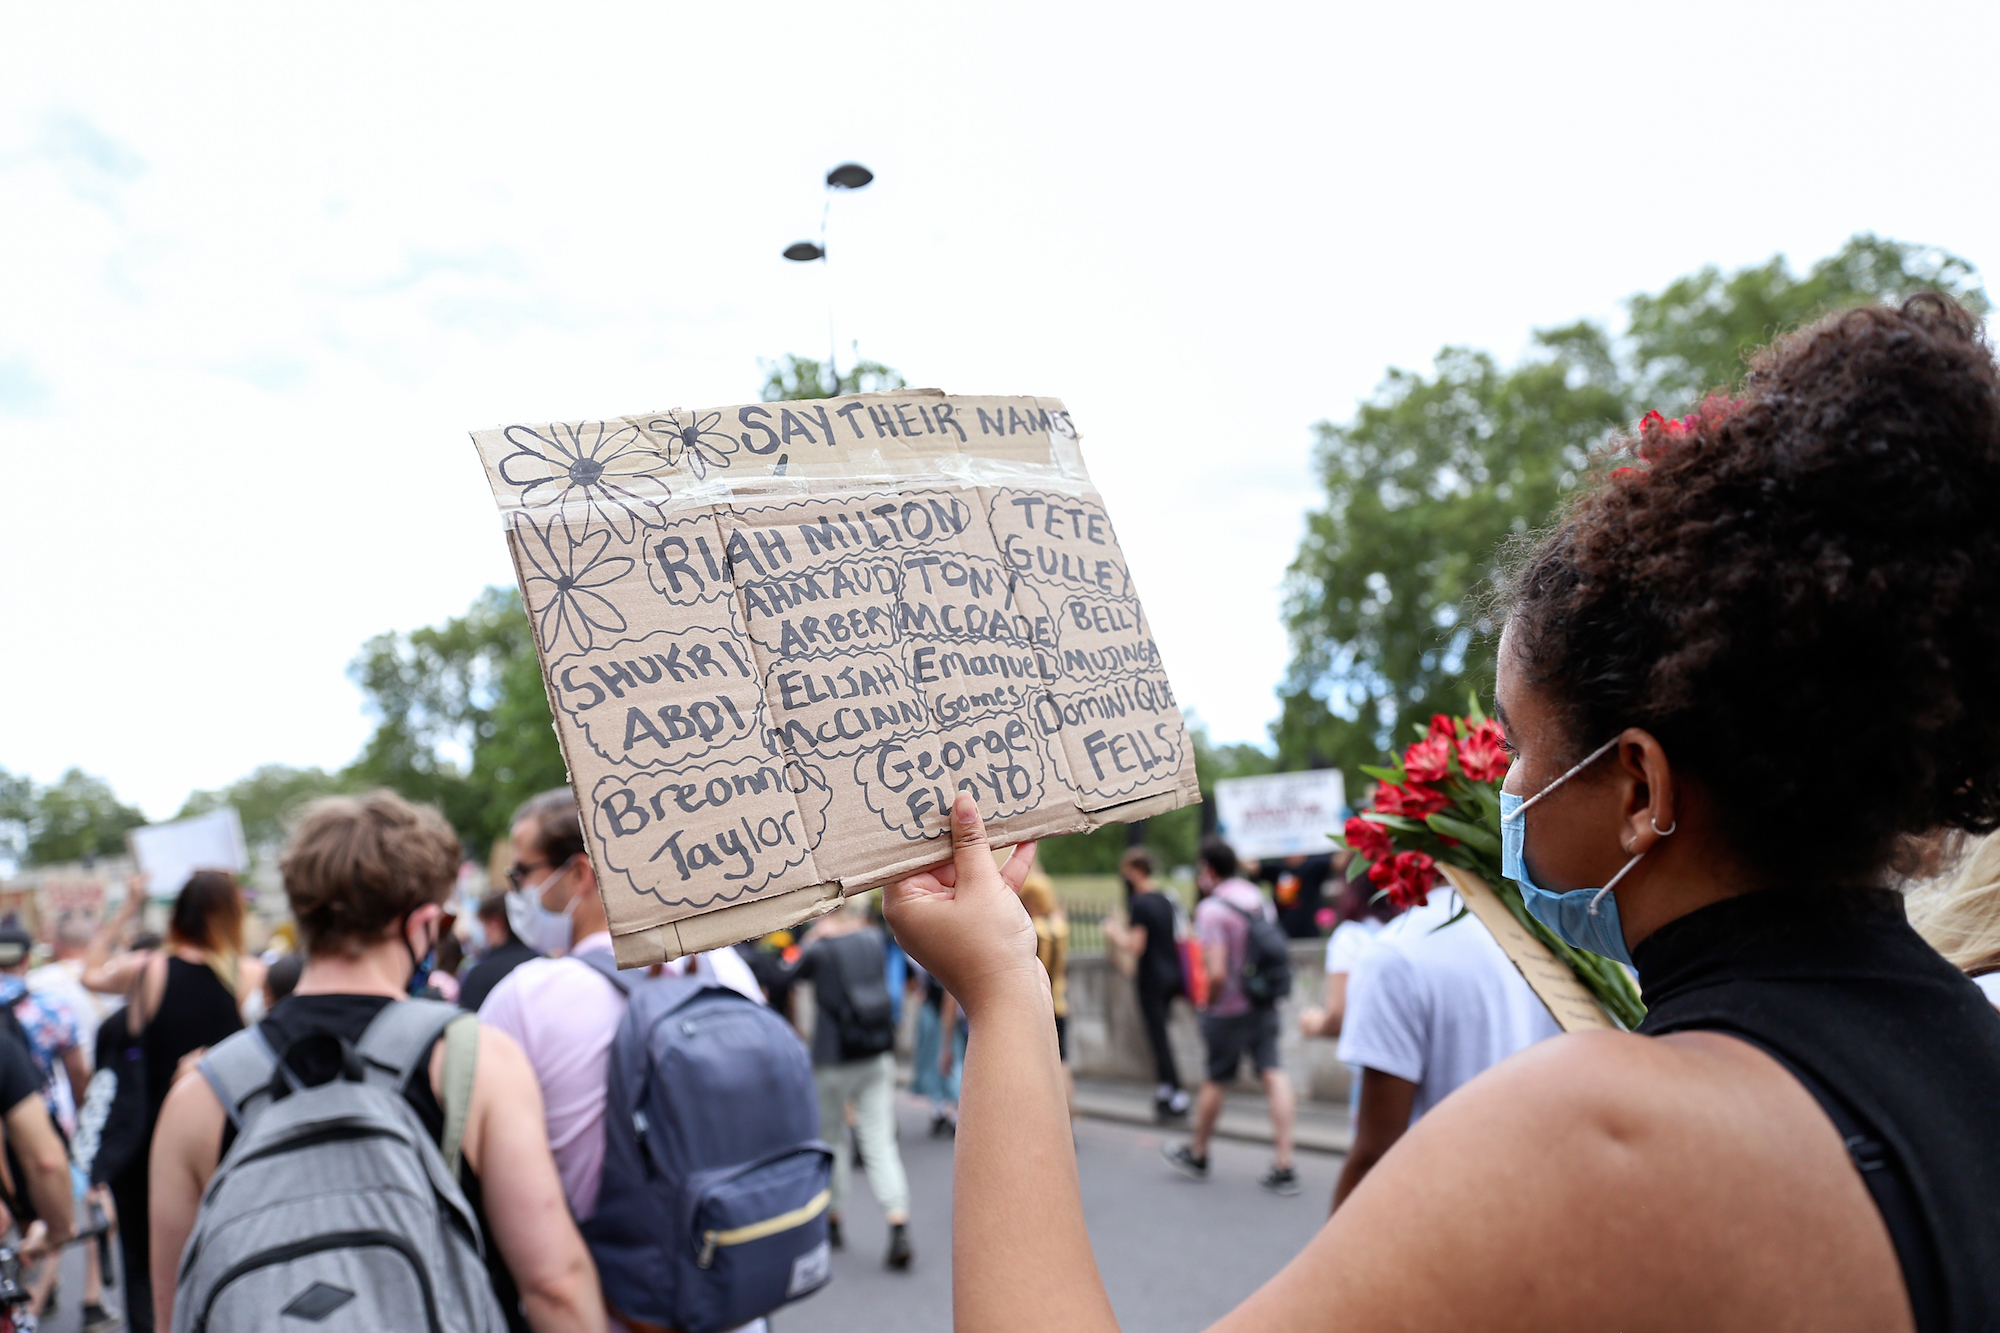 SAY THEIR NAMES
RIAH MILTON
TETE
GULLEY
AHMAUD
ARBERY
TONY
MCDADE
BELLY
MUJINGA
SHUKRI
ABDI
ELIJAH
McCLANN
Emanuel
Gomes
DOMINIQUE
FELLS
Breonna
Taylor
George
FLOYD